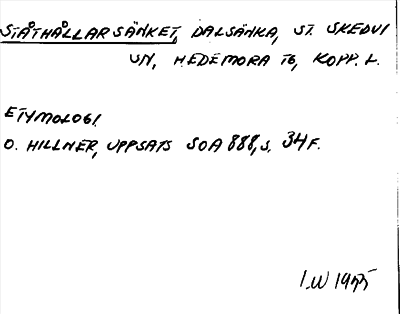 STÅTHÅLLARSÄNKET, DALSÄNKA, ST. SKEDVI
UN, HEDEMORA TG, KOPP. L.
ETYMOLOGI
O. HILLNER, UPPSATS SOA 888, S. 34 F.
I.W 1975